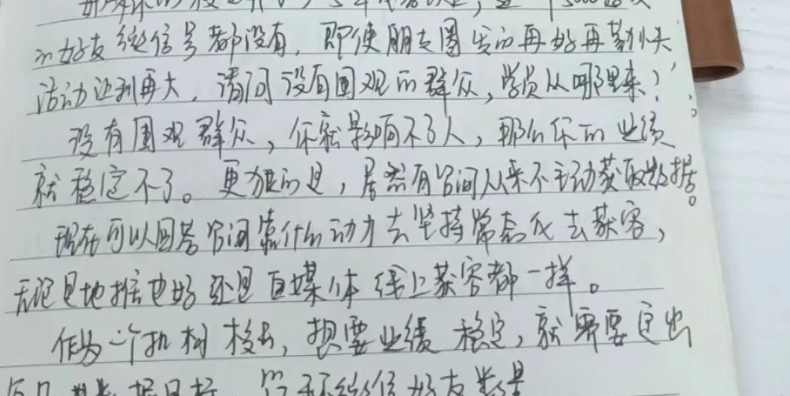 的好友微信号都没有,即使朋友圈发的再好再勤快
活动让利再大,请问没有围观的群众,学员从哪里来?
没有围观群众,你就影响不了人,那么你的业绩
就稳定不了。更加的是,居然有咨询从来不主动获取数据。
现在可以回答咨询靠什么动力去坚持常态化去获客,
无论是地推也好还是自媒体线上获客都一样。
作为一个机构校长,想要业绩稳定,就需要定出
微信好友数量